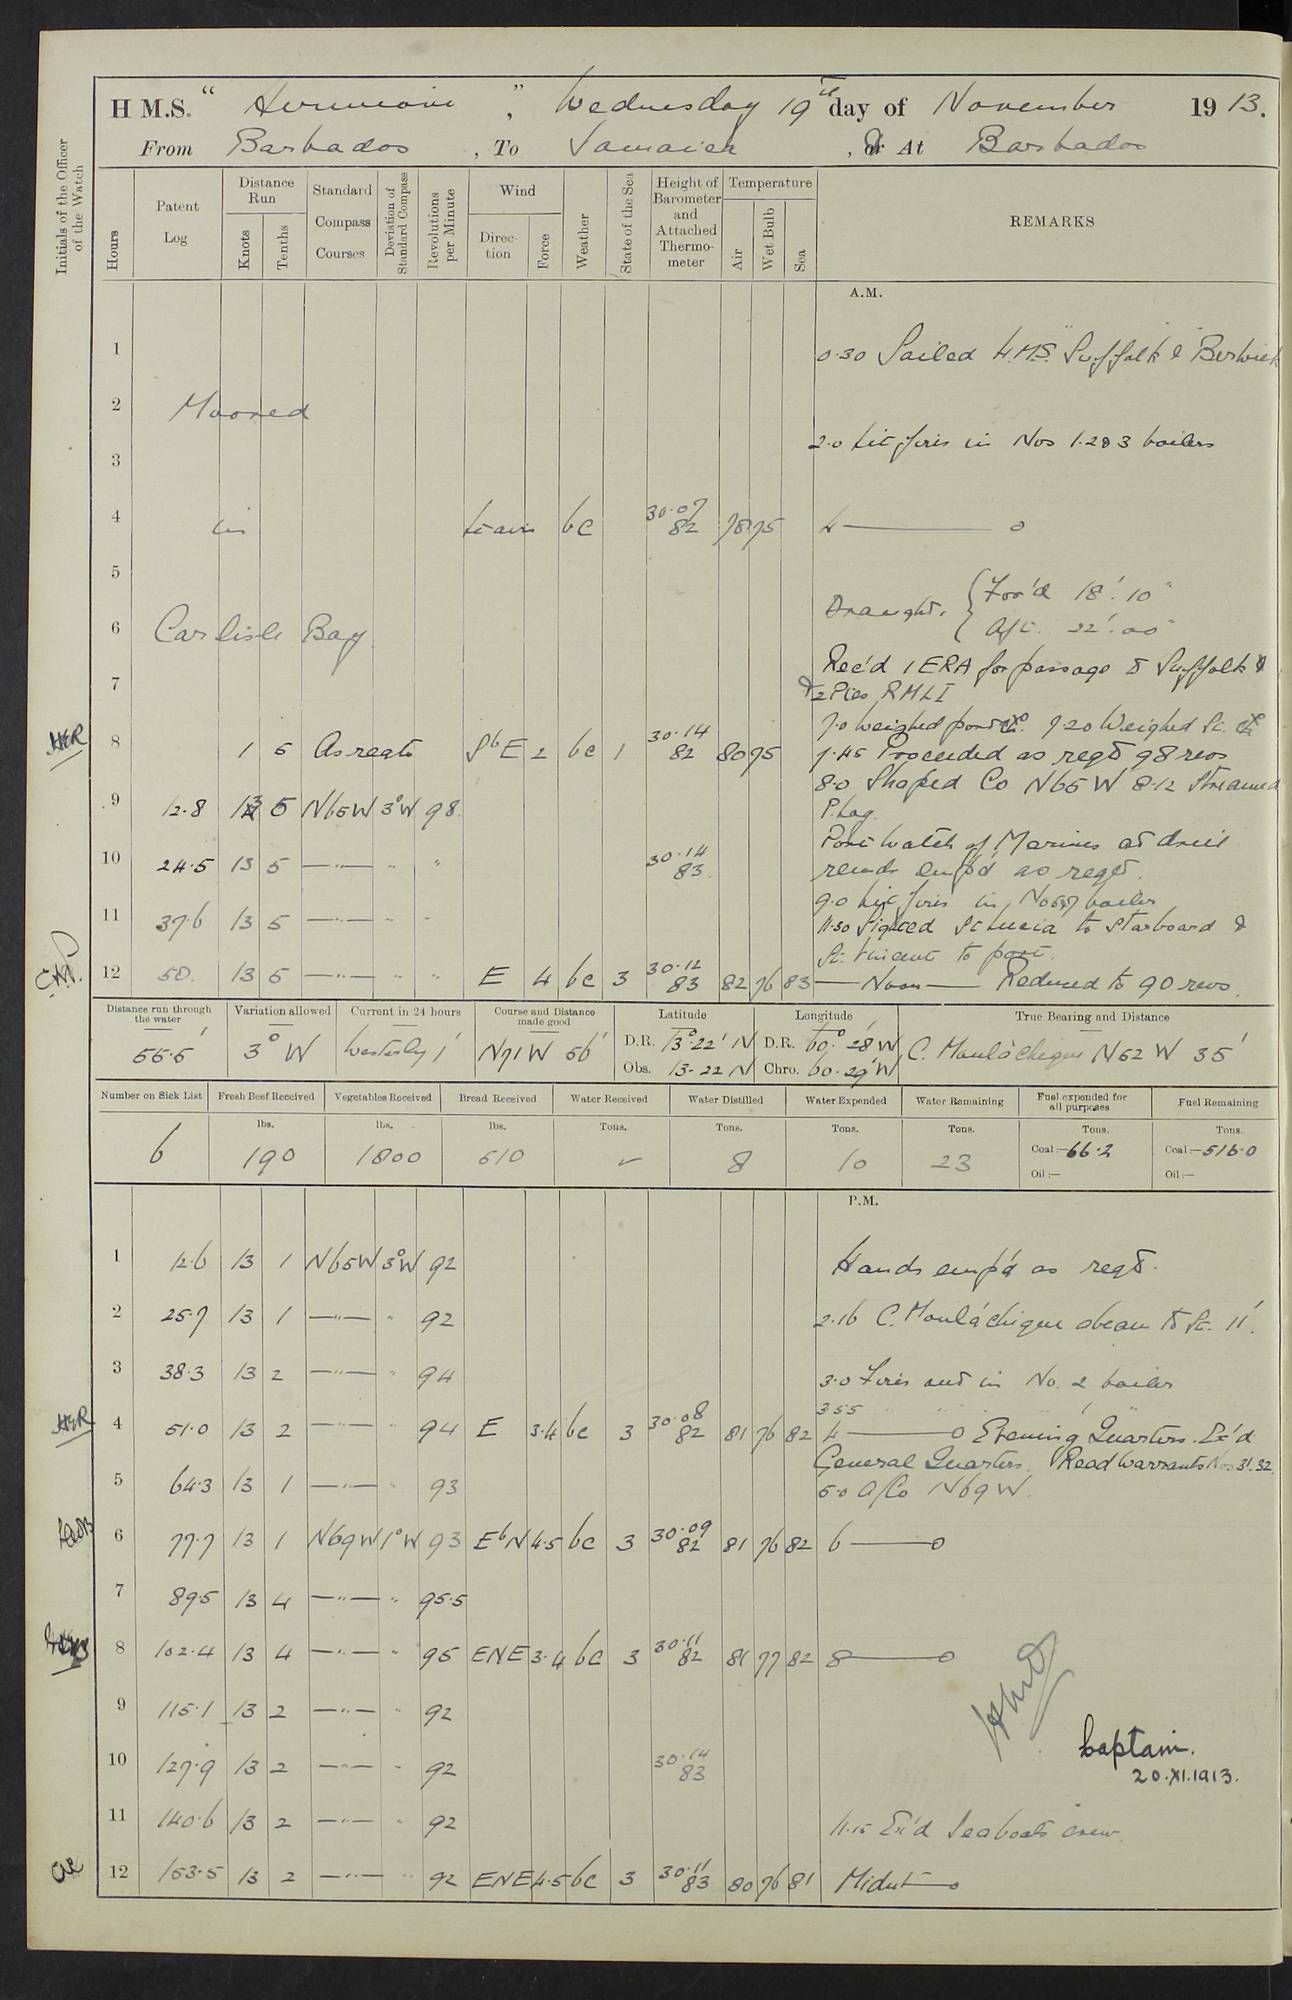 H M.S. " Hermione ", Wednesday 19th day of November 1913.
From Barbados, To Jamaica, or At Barbados
Initials of the Officer of the Watch
Hours
Patent Log
Distance Run
Knots
Tenths
Standard Compass Courses
Deviation of Standard Compass
Revolutions per Minute
Wind
Direction
Force
Weather
State of the Sea
Height of Barometer and Attached Thermometer
Temperature
Air
Wet Bulb
Sea
REMARKS
A.M.
1 0.30 Sailed H.M.S. "Suffolk" & "Berwick"
2 Moored
2.0 Lit fires in Nos 1.2&3 boilers
3
4 in bc 30.07 82 78 75 4 — 0
5
Draught. { For'd 18'. 10"
Aft. 22'. 00"
6 Carlisle Bay
Rec'd 1 ERA for passage to Suffolk &
7 2 Ptes RMLI
7.0 Weighed port 7.20 Weighed St.
8 1 5 As reqte SbE 2 bc 1 30.14 82 80 75 7.45 Proceeded as reqd 98 revs
8.0 Shaped Co N65W 8.12 Streamed
9 12.8 13 5 N65W 3°W 98 P. Log.
Port Watch of Marines at drill
10 24.5 13 5 —"— " " 30.14 83 remdr emp'd as reqd.
9.0 Lit fires in boiler
11 37.6 13 5 —"— " " 11.30 Sighted St Lucia to starboard &
St. Vincent to port.
12 50. 13 5 —"— " " E 4 bc 3 30.12 83 82 76 83 — Noon — Reduced to 90 revs.
Distance run through the water
55.5'
Variation allowed
3° W
Current in 24 hours
Westerly 1'
Course and Distance made good
N71W 56'
Latitude
D.R. 13° 22' N
Obs. 13-22 N
Longitude
D.R. 60° 28' W
Chro. 60.29' W
True Bearing and Distance
C. Moulàchique N52 W 35'
Number on Sick List
6
Fresh Beef Received
lbs.
190
Vegetables Received
lbs.
1800
Bread Received
lbs.
510
Water Received
Tons.
Water Distilled
Tons.
8
Water Expended
Tons.
10
Water Remaining
Tons.
23
Fuel expended for all purposes
Tons.
Coal:—66.2
Oil:—
Fuel Remaining
Tons.
Coal:—516.0
Oil:—
P.M.
1 12.6 13 1 N65W 3°W 92 Hands emp'd as reqd.
2 25.7 13 1 —"— " 92 2.16 C. Moulàchique abeam to St. 11'.
3 38.3 13 2 —"— " 94 3.0 Fires out in No. 2 boiler
3.55 " " " " "
4 51.0 13 2 —"— " 94 E 3.4 bc 3 30.08 82 81 76 82 4 — 0 Evening Quarters. Ex'd
General Quarters. Read Warrants Nos 31.32
5 64.3 13 1 —"— " 93 5.0 A/Co N69W.
6 77.7 13 1 N69W 1°W 93 EbN 4.5 bc 3 30.09 82 81 76 82 6 — 0
7 89.5 13 4 —"— " 95.5
8 102.4 13 4 —"— " 95 ENE 3.4 bc 3 30.11 82 81 77 82 8 — 0
9 115.1 13 2 —"— " 92
10 127.9 13 2 —"— " 92 30.14 83
Captain.
20.XI.1913.
11 140.6 13 2 —"— " 92 11.15 Ex'd Seaboats crew.
12 153.5 13 2 —"— " 92 ENE 4.5 bc 3 30.11 83 80 76 81 Midnt — 0